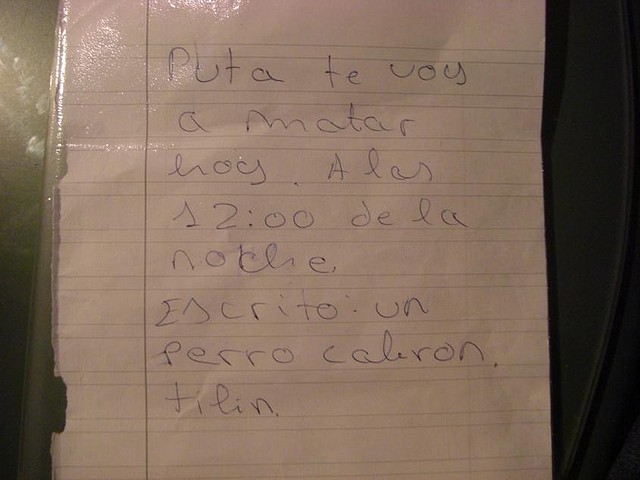 Puta te voy
a matar
hoy. A las
12:00 de la
noche.
Escrito: un
perro cabron.
tilin.